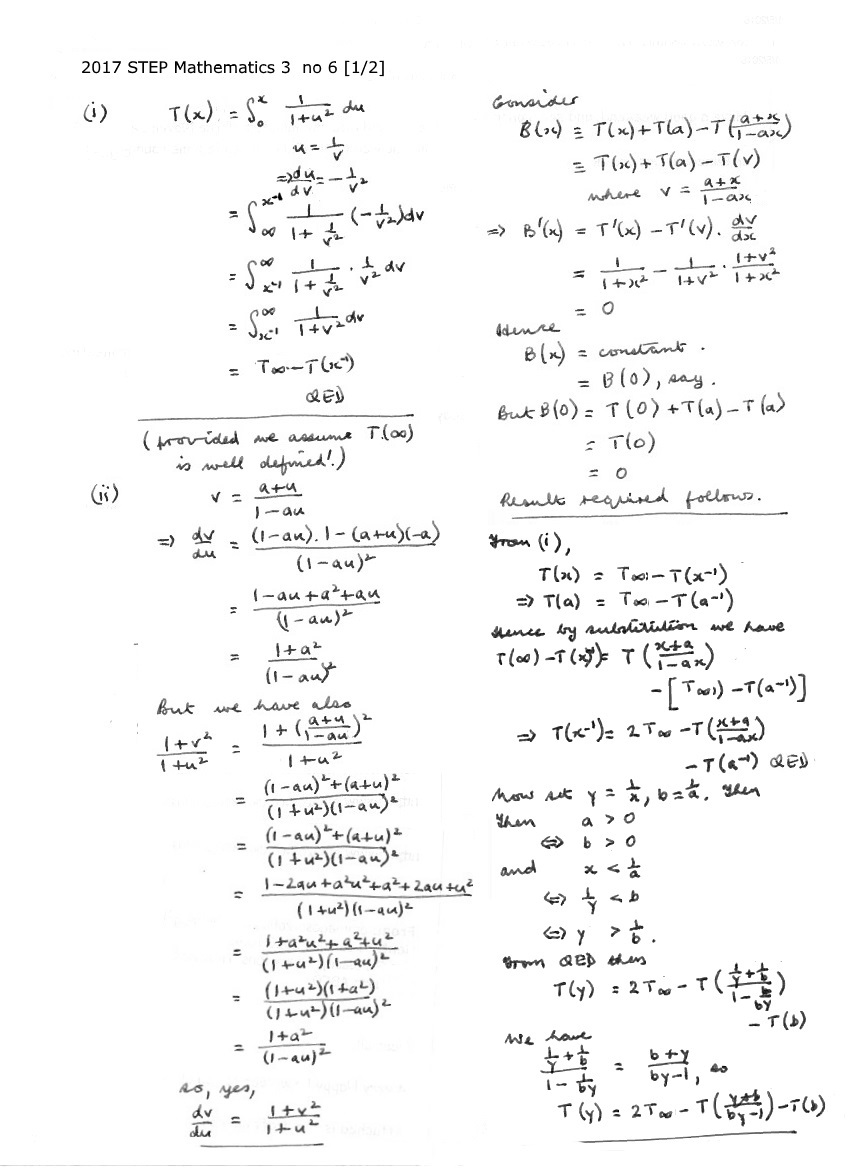 2017 STEP Mathematics 3 no 6 [1/2]
(i) T(x) = ∫₀ˣ 1/(1+u²) du
u = 1/v
⇒ du/dv = -1/v²
= ∫_∞^{x⁻¹} 1/(1+1/v²) (-1/v²) dv
= ∫_{x⁻¹}^∞ 1/(1+1/v²) · 1/v² dv
= ∫_{x⁻¹}^∞ 1/(1+v²) dv
= T∞ - T(x⁻¹)
QED
(provided we assume T(∞)
is well defined!)
(ii) v = (a+u)/(1-au)
⇒ dv/du = ((1-au).1-(a+u)(-a))/(1-au)²
= (1-au+a²+au)/(1-au)²
= (1+a²)/(1-au)²
But we have also
(1+v²)/(1+u²) = (1+((a+u)/(1-au))²)/(1+u²)
= ((1-au)²+(a+u)²)/((1+u²)(1-au)²)
= ((1-au)²+(a+u)²)/((1+u²)(1-au)²)
= (1-2au+a²u²+a²+2au+u²)/((1+u²)(1-au)²)
= (1+a²u²+a²+u²)/((1+u²)(1-au)²)
= ((1+u²)(1+a²))/((1+u²)(1-au)²)
= (1+a²)/(1-au)²
so, yes,
dv/du = (1+v²)/(1+u²)
Consider
B(x) ≡ T(x)+T(a)-T((a+x)/(1-ax))
≡ T(x)+T(a)-T(v)
where v = (a+x)/(1-ax)
⇒ B'(x) = T'(x) - T'(v). dv/dx
= 1/(1+x²) - 1/(1+v²) · (1+v²)/(1+x²)
= 0
Hence
B(x) = constant.
= B(0), say.
But B(0) = T(0)+T(a)-T(a)
= T(0)
= 0
Result required follows.
From (i),
T(x) = T∞ - T(x⁻¹)
⇒ T(a) = T∞ - T(a⁻¹)
Hence by substitution we have
T(∞) - T(x⁻¹) = T((x+a)/(1-ax))
- [T(∞) - T(a⁻¹)]
⇒ T(x⁻¹) = 2T∞ - T((x+a)/(1-ax))
- T(a⁻¹) QED
Now set y = 1/x, b = 1/a. Then
Then a > 0
⇔ b > 0
and x < 1/a
⇔ 1/y < b
⇔ y > 1/b.
From QED then
T(y) = 2T∞ - T((1/y+1/b)/(1-1/by))
- T(b)
We have
(1/y+1/b)/(1-1/by) = (b+y)/(by-1), so
T(y) = 2T∞ - T((y+b)/(by-1)) - T(b)